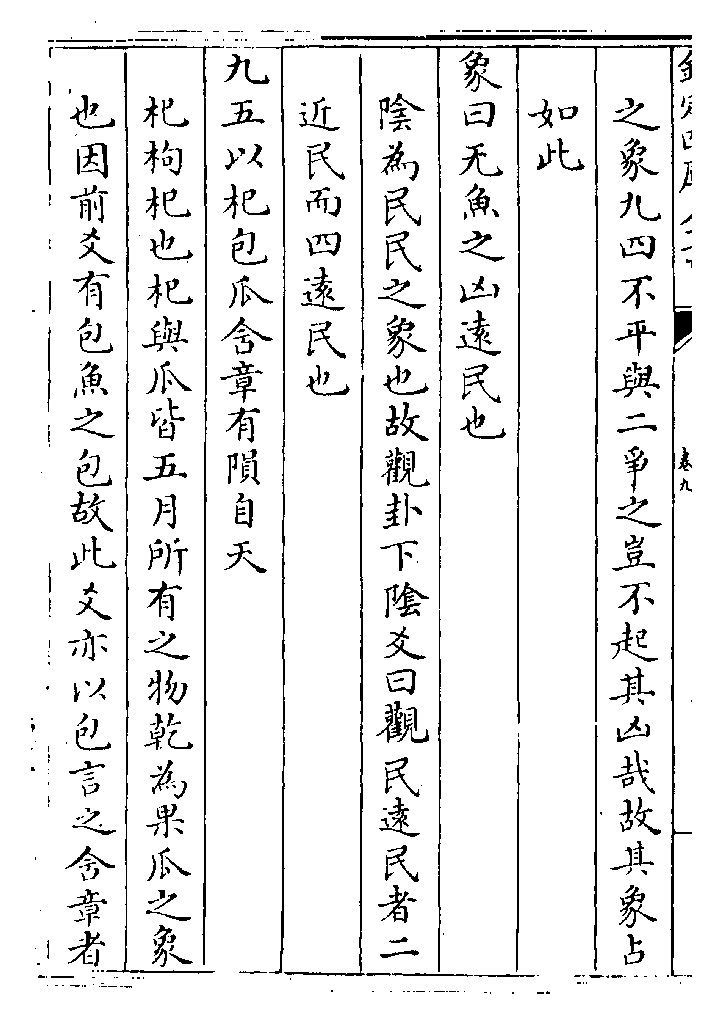 欽定四庫全書
卷九
之象九四不平與二爭之豈不起其凶哉故其象占
如此
象曰无魚之凶遠民也
陰為民民之象也故觀卦下陰爻曰觀民遠民者二
近民而四遠民也
九五以杞包瓜含章有隕自天
杞枸杞也杞與瓜皆五月所有之物乾為果瓜之象
也因前爻有包魚之包故此爻亦以包言之含章者